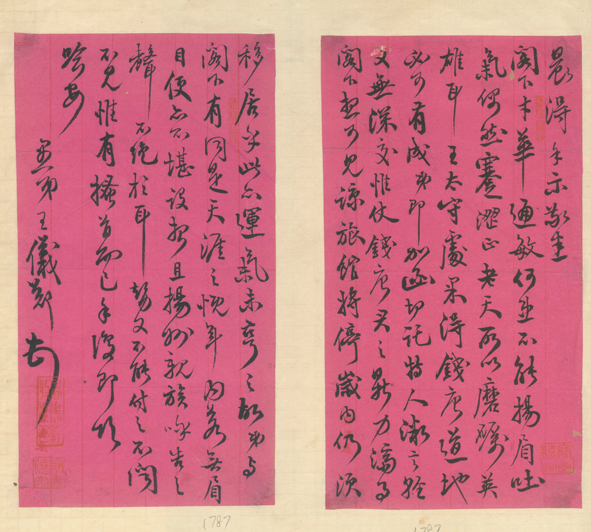 晨得手示敬生
閣下才華通敏何患不能揚眉吐
氣偶然蹇澀正老天所以磨礪英
雄耳王太守處果得錢唐道地
必可有成弟即加函切託特人微言輕
又無深交惟仗錢唐君之鼎力濟事
閣下想可見諒旅館將停歲內仍須
移居乎此亦運氣未亨之故弟與
閣下有同是天涯之慨年內若無眉
目便亦不堪設想且揚州親族啼告之
聲不絕於耳勢又不能付之不聞
不見惟有搔首而已手復即頌
吟安
弟王儀鄭頓
1787
1787